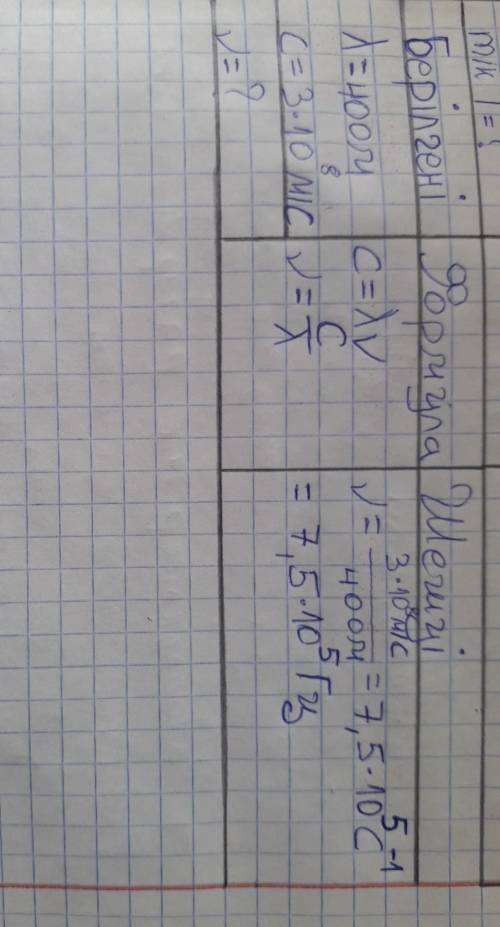 Берілгені
λ = 400м
c = 3·10⁸ м/с
ν = ?
Формула
c = λν
ν = c/λ
Шешуі
ν = 3·10⁸м/с / 400м = 7,5·10⁵ с⁻¹
= 7,5·10⁵ Гц